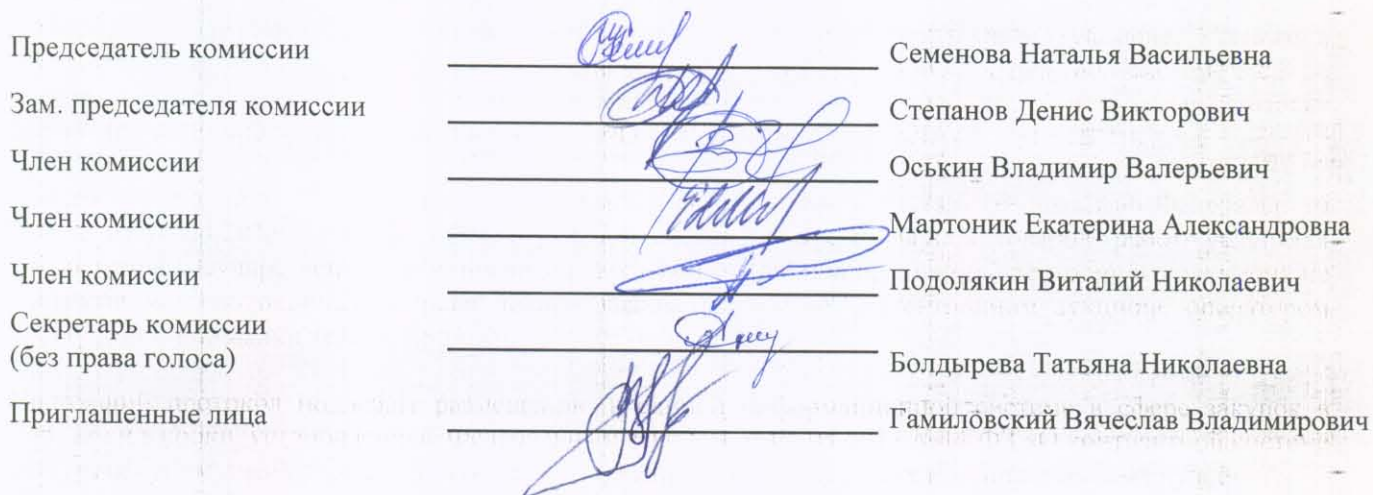 Председатель комиссии Семенова Наталья Васильевна
Зам. председателя комиссии Степанов Денис Викторович
Член комиссии Оськин Владимир Валерьевич
Член комиссии Мартоник Екатерина Александровна
Член комиссии Подолякин Виталий Николаевич
Секретарь комиссии
(без права голоса) Болдырева Татьяна Николаевна
Приглашенные лица Гамиловский Вячеслав Владимирович